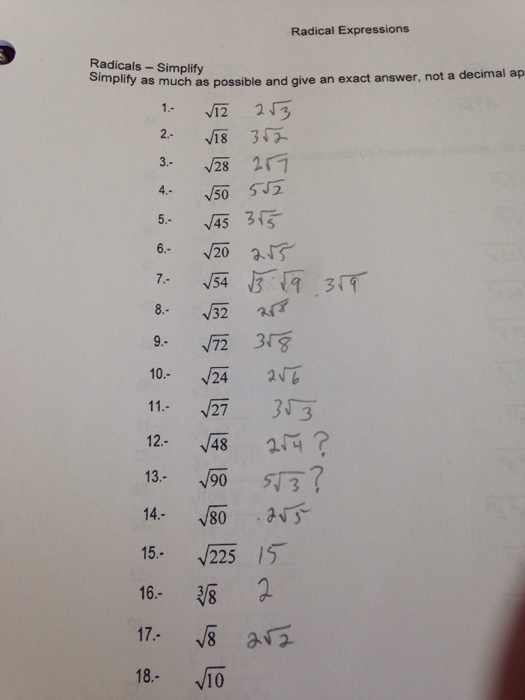 Radical Expressions
Radicals – Simplify
Simplify as much as possible and give an exact answer, not a decimal ap
1.- √12 2√3
2.- √18 3√2
3.- √28 2√7
4.- √50 5√2
5.- √45 3√5
6.- √20 2√5
7.- √54 √3 · √9 3√9
8.- √32 2√8
9.- √72 3√8
10.- √24 2√6
11.- √27 3√3
12.- √48 2√4 ?
13.- √90 5√3 ?
14.- √80 2√5
15.- √225 15
16.- ∛8 2
17.- √8 2√2
18.- √10